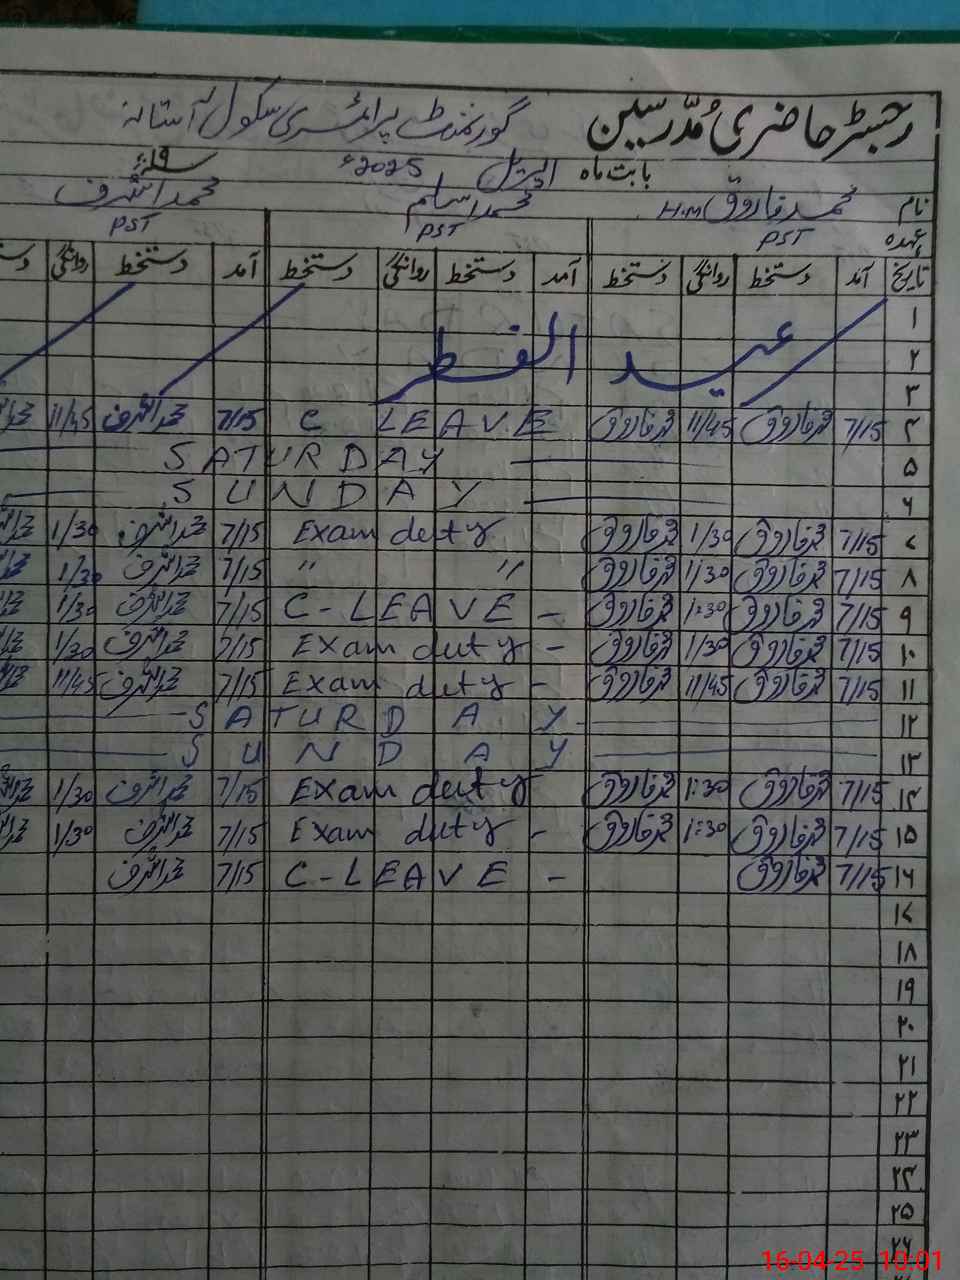 رجسٹر حاضری مُدّرسین گورنمنٹ پرائمری سکول آستانہ
بابت ماہ اپریل 2025ء
نام محمد فاروق H.M محمد اسلم محمد اشرف
عہدہ PST PST PST
تاریخ آمد دستخط روانگی دستخط آمد دستخط روانگی دستخط آمد دستخط روانگی
۱
۲ عید الفطر
۳
۴ 7/15 محمد فاروق 11/45 محمد فاروق C LEAVE 7/15 محمد اشرف 11/45
۵ SATURDAY
۶ SUNDAY
۷ 7/15 محمد فاروق 1/30 محمد فاروق Exam duty 7/15 محمد اشرف 1/30
۸ 7/15 محمد فاروق 1/30 محمد فاروق " " 7/15 محمد اشرف 1/30
۹ 7/15 محمد فاروق 1:30 محمد فاروق C-LEAVE - 7/15 محمد اشرف 1/30
۱۰ 7/15 محمد فاروق 1/30 محمد فاروق Exam duty - 7/15 محمد اشرف 1/30
۱۱ 7/15 محمد فاروق 11/45 محمد فاروق Exam duty - 7/15 محمد اشرف 11/45
۱۲ SATURDAY
۱۳ SUNDAY
۱۴ 7/15 محمد فاروق 1:30 محمد فاروق Exam duty 7/15 محمد اشرف 1/30
۱۵ 7/15 محمد فاروق 1:30 محمد فاروق Exam duty - 7/15 محمد اشرف 1/30
۱۶ 7/15 محمد فاروق C-LEAVE - 7/15 محمد اشرف
۱۷
۱۸
۱۹
۲۰
۲۱
۲۲
۲۳
۲۴
۲۵
۲۶
16-04-25 10:01